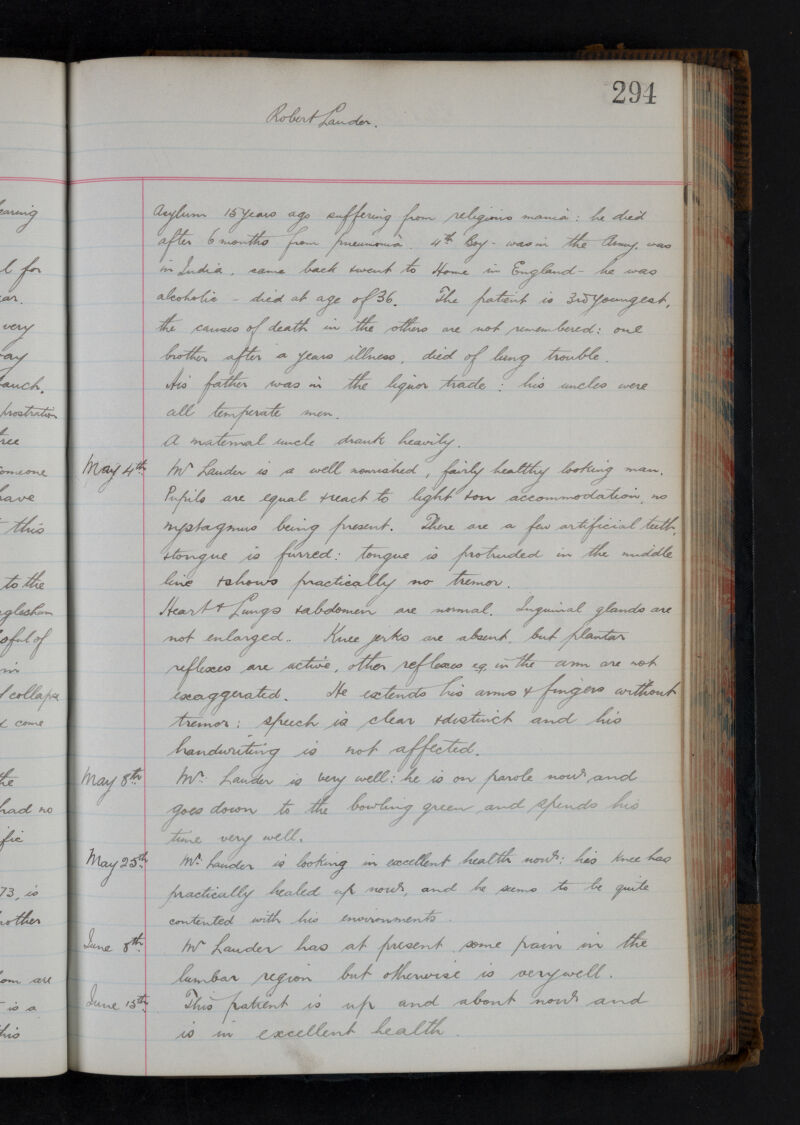 294
Robert Lauder.
Asylum 15 years ago suffering from religious mania: he died
after 6 months from pneumonia. 4th Boy - was in the Army, was
in India, came back & went to Home in England - he was
alcoholic - died at age of 36. The patient is 3rd youngest,
the causes of death in the others are not remembered: one
brother after a years illness, died of lung trouble.
His father was in the liquor trade: his uncles were
all temperate men.
A maternal uncle drank heavily.
May 4th. Mr Lauder is a well nourished, fairly healthy looking man.
Pupils are equal & react to light & on accommodation, no
nystagmus being present. There are a few artificial teeth,
& tongue is furred: tongue is protruded in the middle
line & shows practically no tremor.
Heart & Lungs & abdomen are normal. Inguinal glands are
not enlarged.. Knee jerks are absent, but plantar
reflexes are active, other reflexes eg. in the arm are not
exaggerated. He extends his arms & fingers without
tremor: speech is clear & distinct and his
handwriting is not affected.
May 8th Mr. Lauder is very well: he is on parole now and
goes down to the bowling green and spends his
time very well.
May 25th. Mr. Lauder is looking in excellent health now: his knee has
practically healed up now, and he seems to be quite
contented with his environments.
June 8th. Mr Lauder has at present some pain in the
lumbar region but otherwise is very well.
June 15th. This patient is up and about now and
is in excellent health.
earing
l for
ar.
very
ay
auch.
prostration
ree
omeone
have
this
to the
eglesham
oful of
in
collapse
come
the
had no
fic
73, is
nother
om are
is a
his